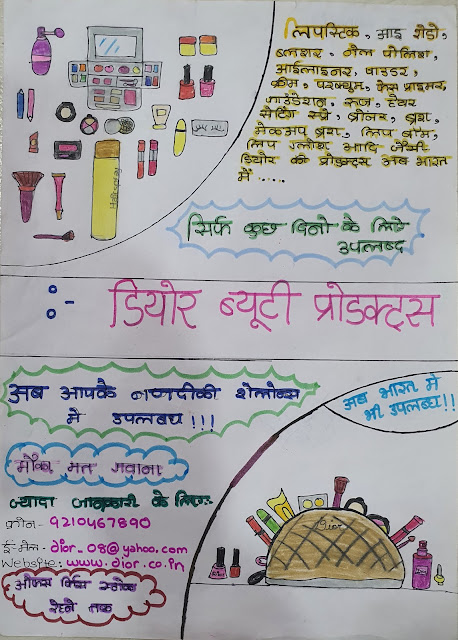 लिपस्टिक, आइ शैडो,
ब्लशर, नेल पोलिश,
आईलाइनर, पाउडर,
क्रीम, परफ्यूम, फेस प्राइमर,
फाउंडेशन, रूज, हेयर
सैटिंग स्प्रे, ब्रश,
मेकअप ब्रश, लिप बॉम,
लिप ग्लोस आदि जैसी
डियोर की प्रोडक्ट्स अब भारत
में .....
सिर्फ कुछ दिनो के लिए
उपलब्द
:- डियोर ब्यूटी प्रोडक्ट्स
अब आपके नजदीकी शेलोब्स
मे उपलबध !!!
अब भारत मे
भी उपलबध !!
मौका मत गवाना
ज्यादा जानकारी के लिए:
फ़ोन- 9210467890
ई-मेल- dior_08@yahoo.com
Website: www.dior.co.in
ऑफर सिर्फ स्टोक
रहने तक
Dior